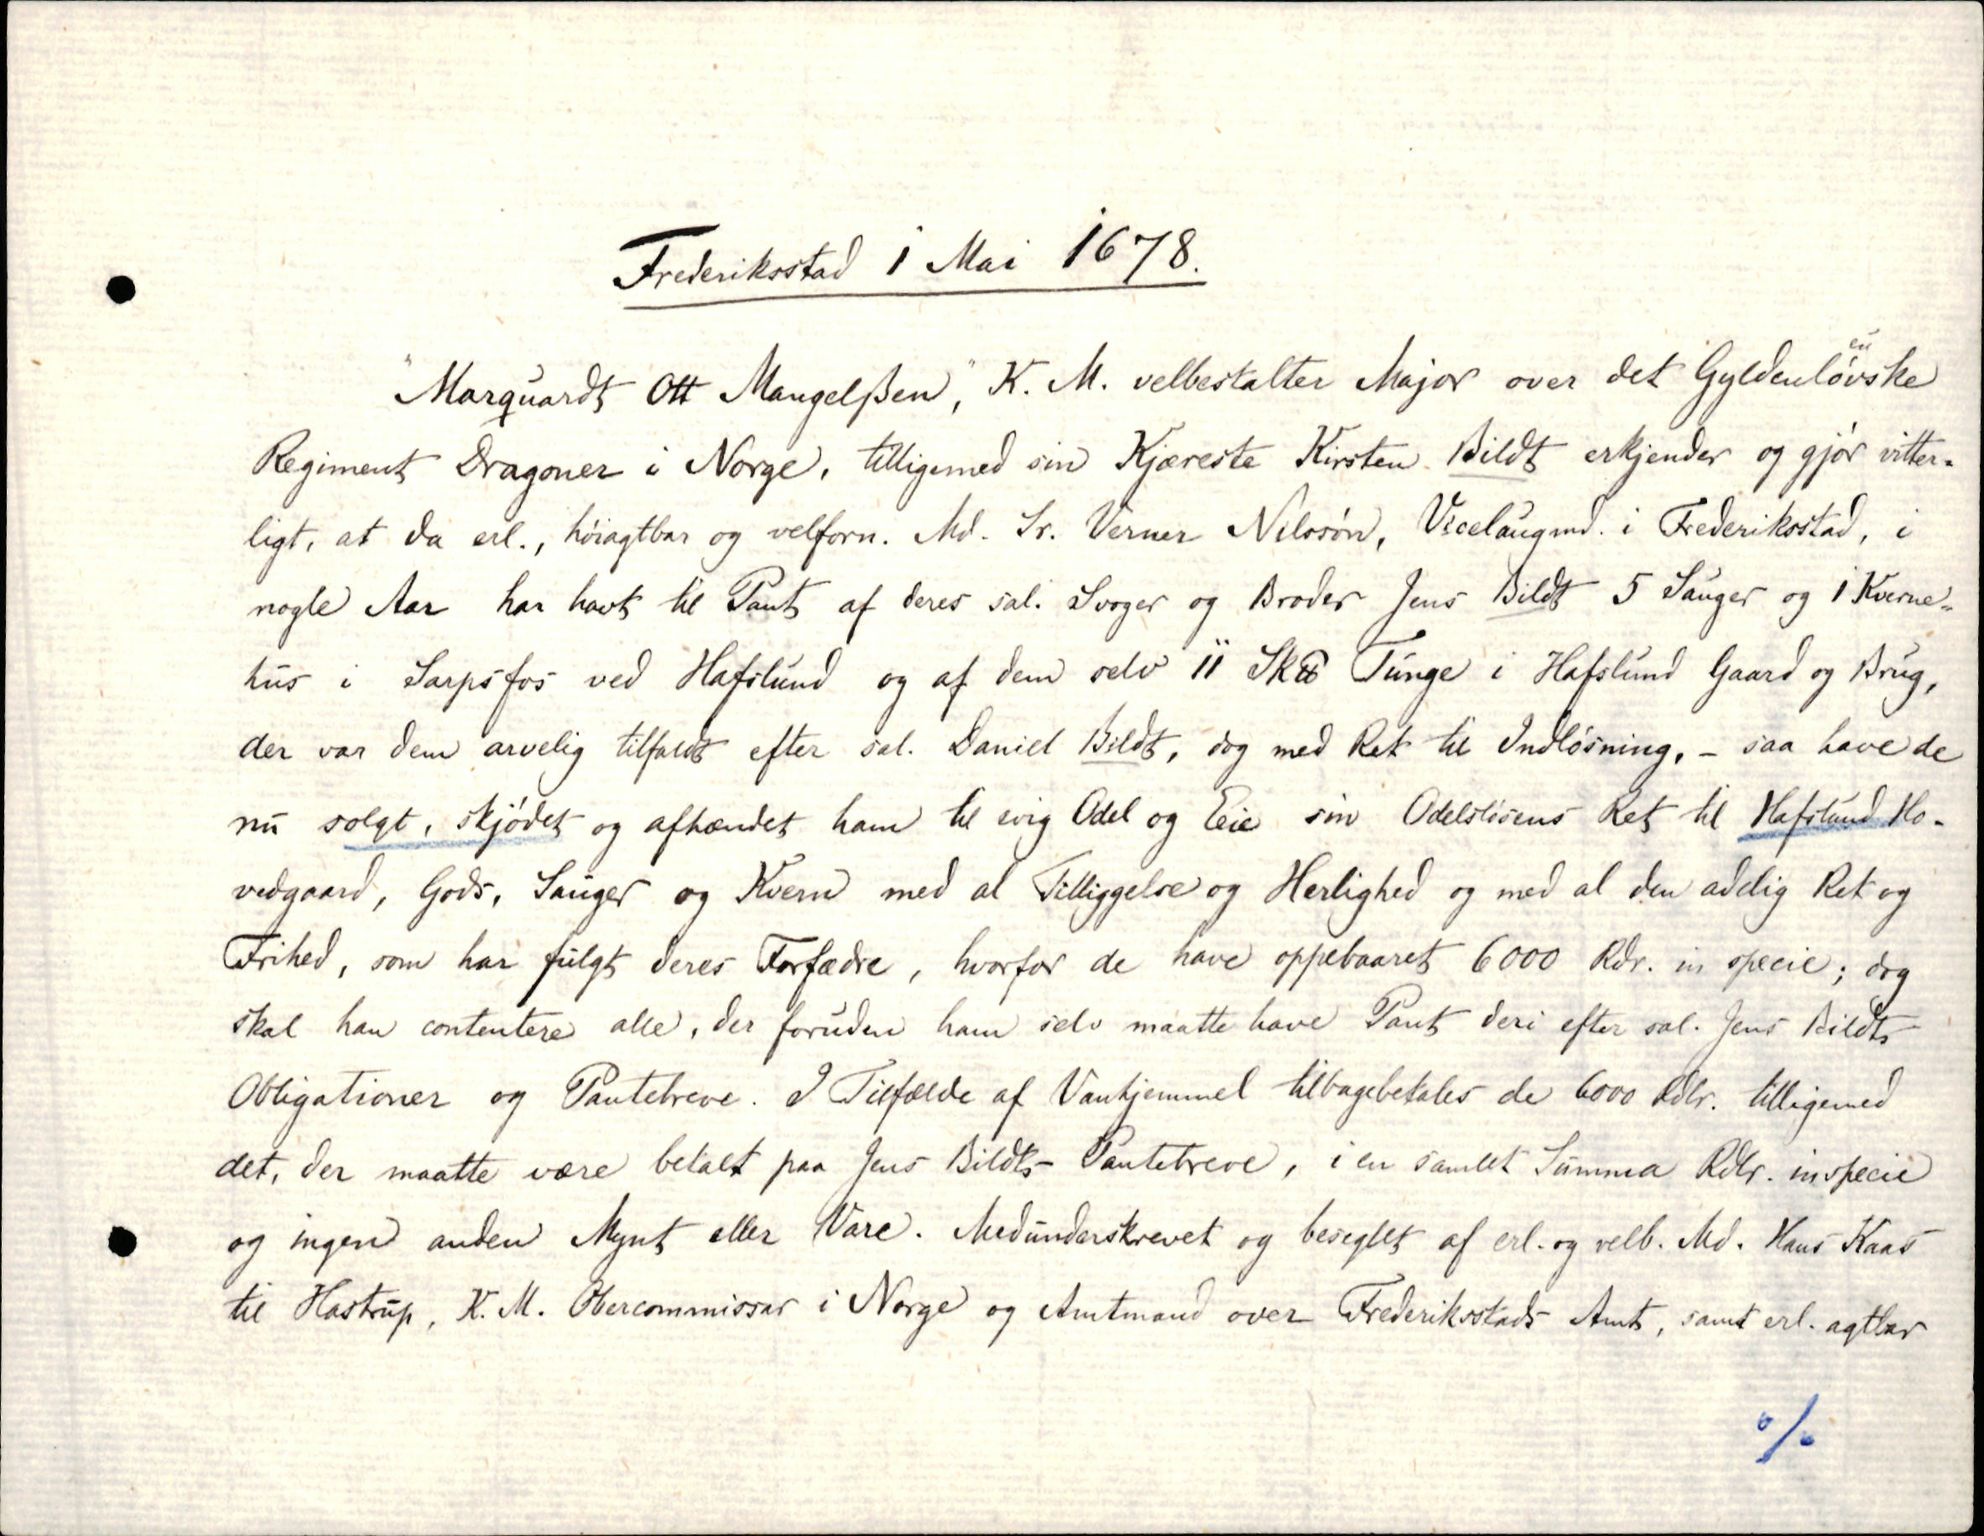 Frederiksstad 1 Mai 1678.
"Marquardt Ott Mangelßen", K. M. velbestalter Major over det Gyldenlövske
Regiment Dragoner i Norge, tilligemed sin Kjæreste Kirsten Bildt erkjender og gjör vitter-
ligt, at da erl., höiagtbar og velforn. Md. Sr. Verner Nilssön, Vicelaugmd. i Frederiksstad, i
nogle Aar har havt til Pant af deres sal. Svoger og Broder Jens Bildt 5 Sauger og 1 Kverne-
hus i Sarpsfos ved Hafslund og af dem selv 11 Sk℔ Tunge i Hafslund Gaard og Brug,
der var dem arvelig tilfaldt efter sal. Daniel Bildt, dog med Ret til Indlösning, - saa have de
nu solgt, skjödet og afhændet ham til evig Odel og Eie sin Odelslösens Ret til Hafslund Ho-
vedgaard, Gods, Sauger og Kvern med al Tilliggelse og Herlighed og med al den adelig Ret og
Frihed, som har fulgt deres Forfædre, hvorfor de have oppebaaret 6000 Rdr. in specie; dog
skal han contentere alle, der foruden ham selv maatte have Pant deri efter sal. Jens Bildts
Obligationer og Pantebreve. I Tilfælde af Vanhjemmel tilbagebetales de 6000 Rdlr. tilligemed
det, der maatte være betalt paa Jens Bildts Pantebreve, i en samlet Summa Rdlr. in specie
og ingen anden Mynt eller Vare. Medunderskrevet og beseglet af erl. og velb. Md. Hans Kaas
til Hastrup, K. M. Obercommissar i Norge og Amtmand over Frederiksstads Amt, samt erl. agtbar
%